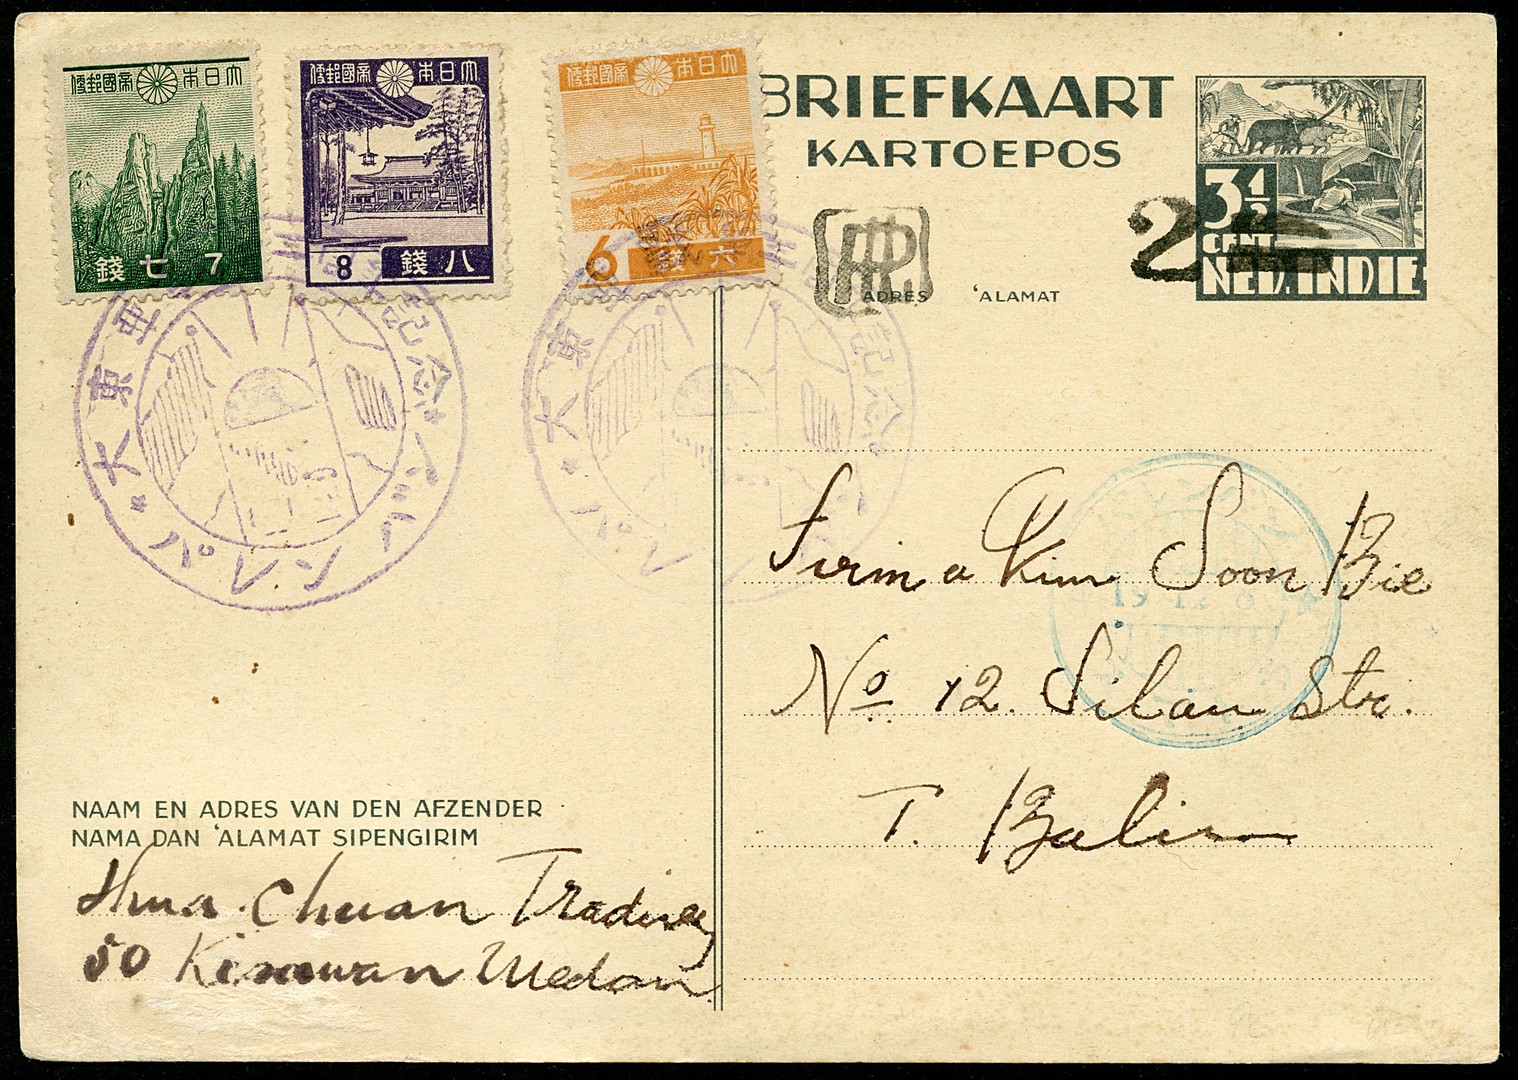 大日本帝國郵便
錢七 7
大日本帝國郵便
8 錢八
大日本帝國郵便
6 錢六
BRIEFKAART
KARTOEPOS
3 1/2
CENT
NED. INDIE
2
ADRES 'ALAMAT
大東亜 記念
大東 記念
Firma Kim Soon Bie
No 12. Silan Str.
T. Balei
19 12 8
NAAM EN ADRES VAN DEN AFZENDER
NAMA DAN 'ALAMAT SIPENGIRIM
Hua Chuan Trading
50 Kesawan Medan